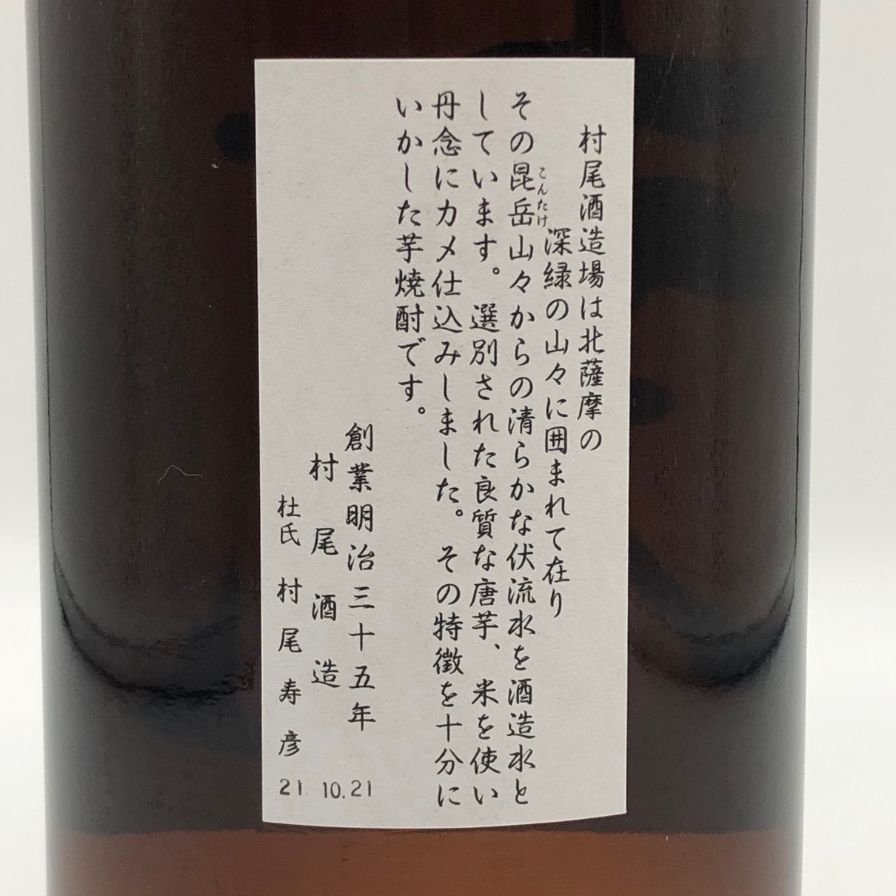 村尾酒造場は北薩摩の
深緑の山々に囲まれて在り
その昆岳山々からの清らかな伏流水を酒造水と
こんたけ
しています。選別された良質な唐芋、米を使い
丹念にカメ仕込みしました。その特徴を十分に
いかした芋焼酎です。
創業明治三十五年
村尾酒造
杜氏 村尾寿彦
21.10.21